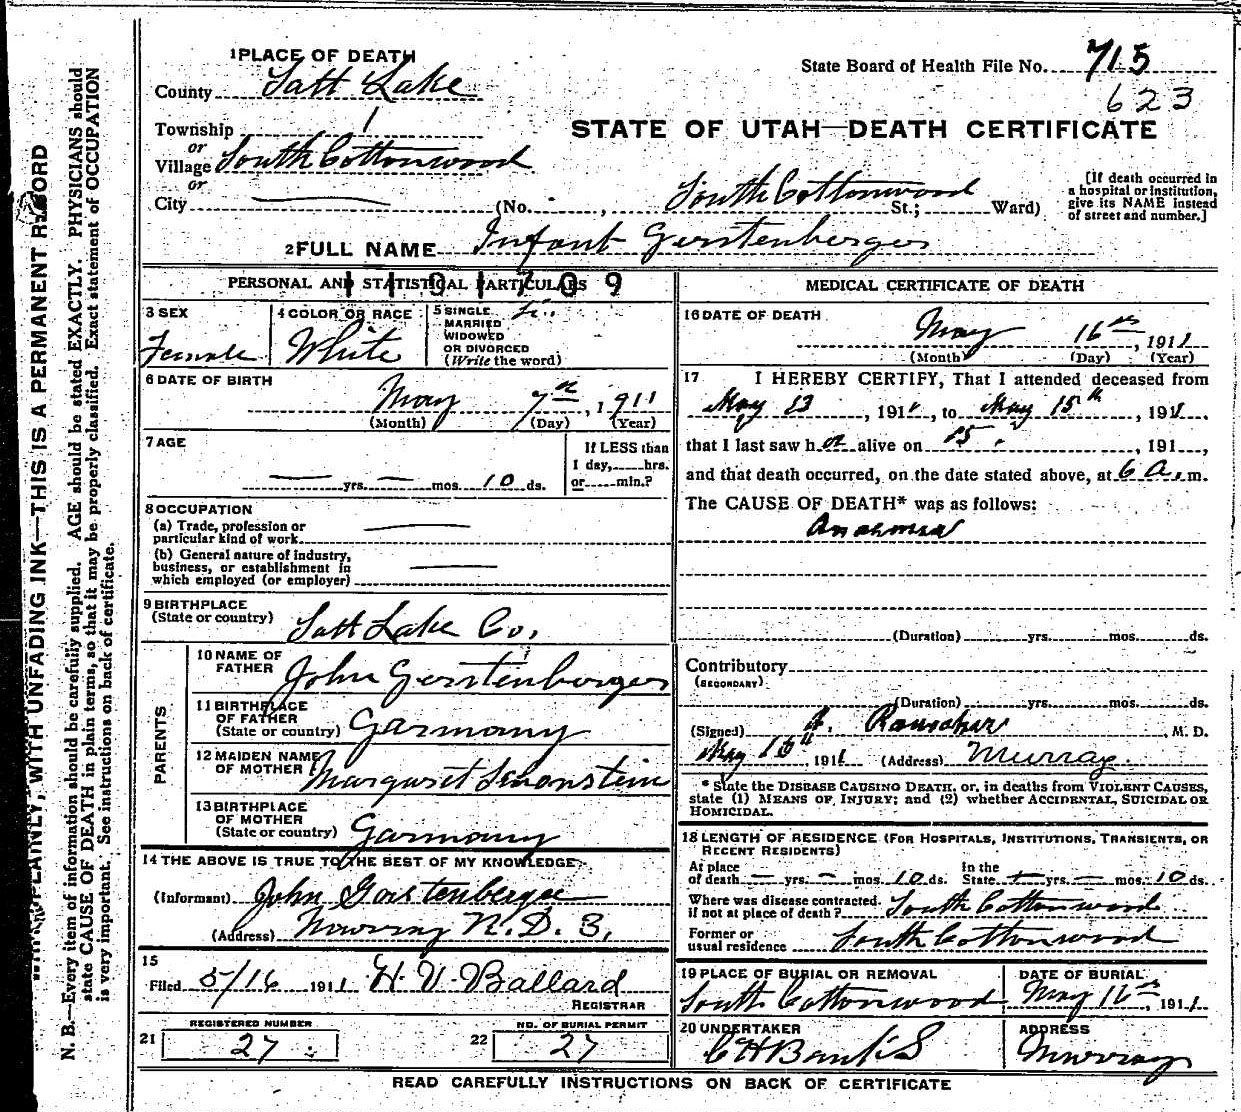 1 PLACE OF DEATH
County Salt Lake
State Board of Health File No. 715
623
Township 1
or
Village South Cottonwood
or
City
STATE OF UTAH—DEATH CERTIFICATE
(No. , South Cottonwood St.; Ward)
[If death occurred in
a hospital or institution,
give its NAME instead
of street and number.]
2 FULL NAME Infant Gerstenberger
PERSONAL AND STATISTICAL PARTICULARS
1101709
3 SEX
Female
4 COLOR OR RACE
White
5 SINGLE
MARRIED
WIDOWED
OR DIVORCED
(Write the word)
6 DATE OF BIRTH
May 7th, 1911
(Month) (Day) (Year)
7 AGE
— yrs. — mos. 10 ds.
If LESS than
1 day, hrs.
or min.?
8 OCCUPATION
(a) Trade, profession or
particular kind of work
(b) General nature of industry,
business, or establishment in
which employed (or employer)
9 BIRTHPLACE
(State or country) Salt Lake Co.
PARENTS
10 NAME OF
FATHER John Gerstenberger
11 BIRTHPLACE
OF FATHER
(State or country) Garmany
12 MAIDEN NAME
OF MOTHER Margaret
13 BIRTHPLACE
OF MOTHER
(State or country) Garmany
14 THE ABOVE IS TRUE TO THE BEST OF MY KNOWLEDGE
(Informant) John Gerstenberger
(Address) Murray R.D. 3,
15
Filed 5/16 1911 H. V. Ballard
REGISTRAR
REGISTERED NUMBER
21 27
NO. OF BURIAL PERMIT
22 27
MEDICAL CERTIFICATE OF DEATH
16 DATE OF DEATH
May 16th, 1911
(Month) (Day) (Year)
17 I HEREBY CERTIFY, That I attended deceased from
May 13, 1911, to May 15th, 1911,
that I last saw her alive on 15, 191 ,
and that death occurred, on the date stated above, at 6 A. m.
The CAUSE OF DEATH* was as follows:
(Duration) yrs. mos. ds.
Contributory
(SECONDARY)
(Duration) yrs. mos. ds.
(Signed) Rauscher M. D.
May 16th 1911 (Address) Murray.
* State the DISEASE CAUSING DEATH, or, in deaths from VIOLENT CAUSES,
state (1) MEANS OF INJURY; and (2) whether ACCIDENTAL, SUICIDAL OR
HOMICIDAL.
18 LENGTH OF RESIDENCE (FOR HOSPITALS, INSTITUTIONS, TRANSIENTS, OR
RECENT RESIDENTS)
At place
of death — yrs. — mos. 10 ds.
In the
State — yrs. — mos. 10 ds.
Where was disease contracted,
if not at place of death? South Cottonwood
Former or
usual residence South Cottonwood
19 PLACE OF BURIAL OR REMOVAL
South Cottonwood
DATE OF BURIAL
May 16th, 1911
20 UNDERTAKER
C H Banks
ADDRESS
Murray
READ CAREFULLY INSTRUCTIONS ON BACK OF CERTIFICATE
PLAINLY, WITH UNFADING INK—THIS IS A PERMANENT RECORD
N. B.—Every item of information should be carefully supplied. AGE should be stated EXACTLY. PHYSICIANS should
state CAUSE OF DEATH in plain terms, so that it may be properly classified. Exact statement of OCCUPATION
is very important. See instructions on back of certificate.